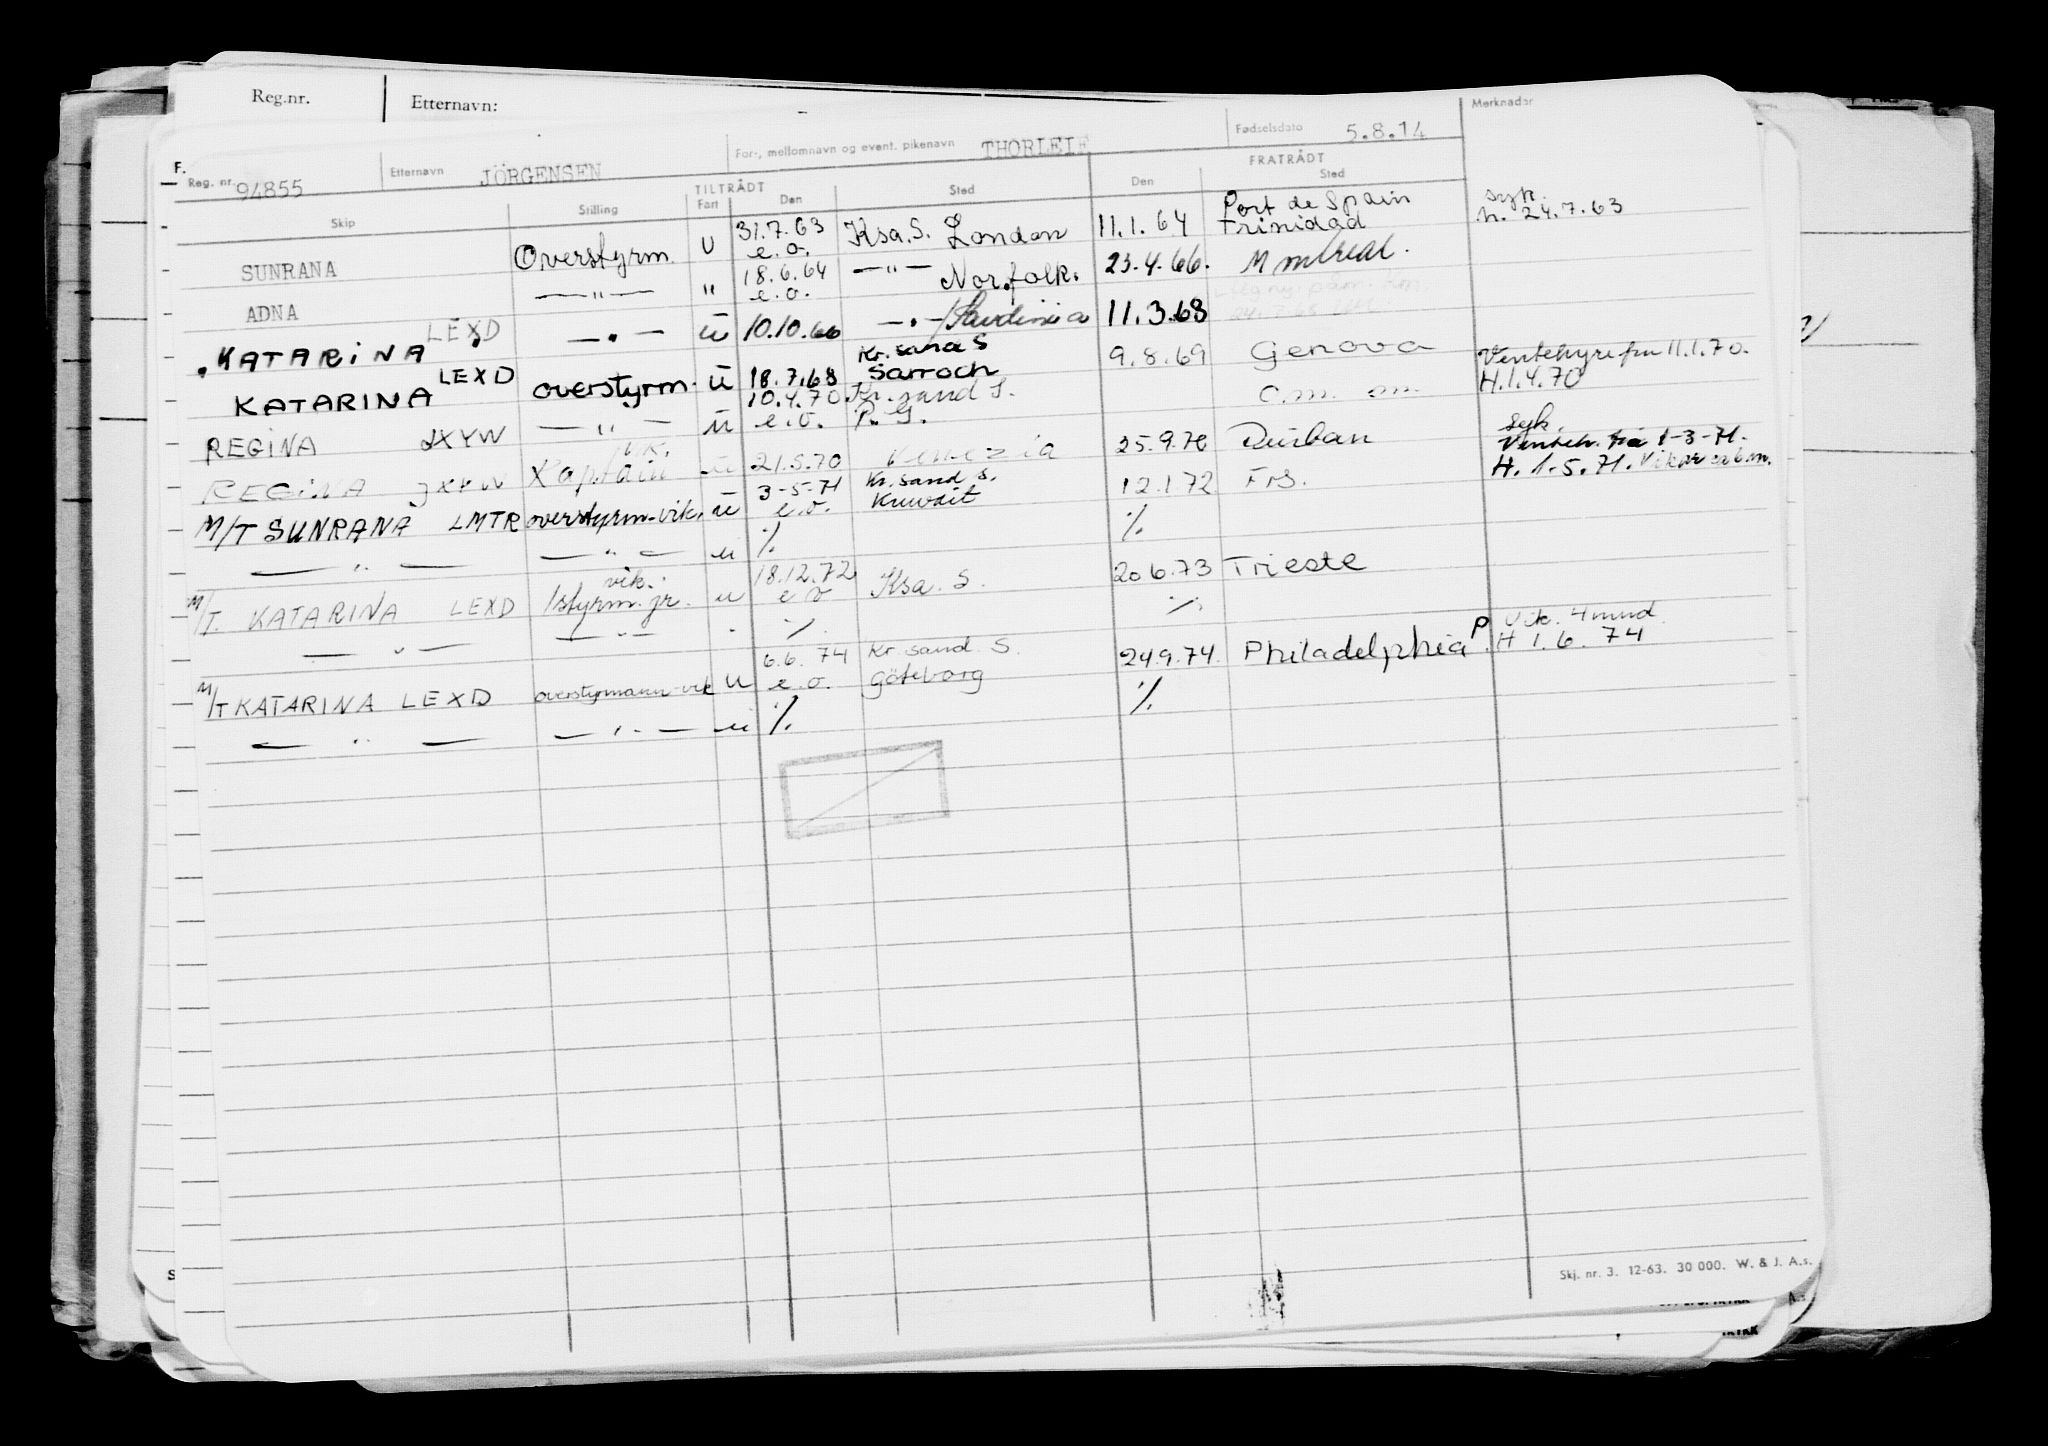 Reg.nr. Etternavn:
Merknader
F.
Reg. nr. 94855 Etternavn JÖRGENSEN For-, mellomnavn og event. pikenavn THORLEIF Fødselsdato 5.8.14
TILTRÅDT FRATRÅDT
Skip Stilling Fart Den Sted Den Sted
SUNRANA Overstyrm. U 31.7.63 e.o. Ksa. S. London 11.1.64 Port de Spain Trinidad syk. h. 24.7.63
ADNA — " — " 18.6.64 e.o. — " — Norfolk. 23.4.66. Montreal.
KATARINA LEXD — " — u 10.10.66 — " — / Sardinia 11.3.68
KATARINA LEXD overstyrm. u 18.7.68 Kr. sand S Sarroch 9.8.69 Genova
REGINA JXYW — " — u 10.4.70 e.o. Kr. sand S. P. G. Ventehyre fra 11.1.70. H.1.4.70
REGINA JXYW Kaptain vik. u 21.5.70 Venezia 25.9.70 Durban
M/T SUNRANA LMTR overstyrm-vik. u 3-5-71 e.o. Kr. sand S. Kuwait 12.1.72 Frs. syk. Venteh. fra 1-3-71. H. 1.5.71. Vikar
— " — — " — u % %
M/T. KATARINA LEXD 1styrm. jr. vik. u 18.12.72 e o Ksa. S. 20 6.73 Trieste
— " — — " — " % %
M/T KATARINA LEXD overstyrmann-vik U 6.6.74 e.o. Kr. sand. S. Göteborg 24.9.74. Philadelphia P. Vik. 4 mnd. H 1.6.74
— " — — " — u % %
Skj. nr. 3. 12-63. 30 000. W. & J. A.s.